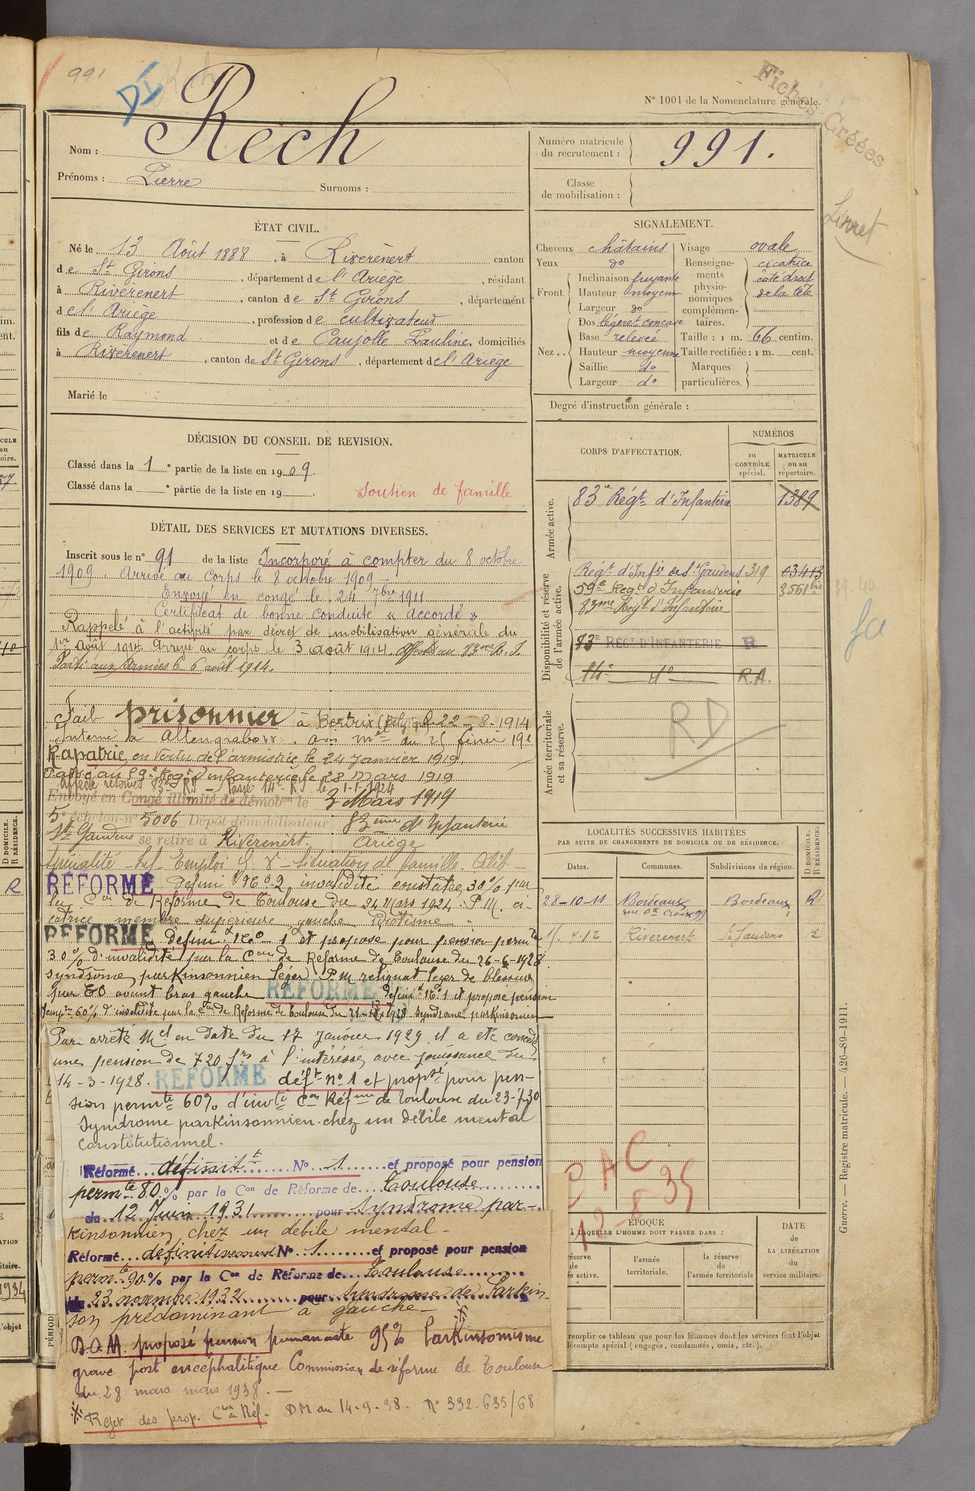 991
Fiches Créées
N° 1001 de la Nomenclature générale.
Nom : Rech
Prénoms : Pierre Surnoms :
Numéro matricule du recrutement : 991.
Classe de mobilisation :
Livret
ÉTAT CIVIL.
Né le 13 Août 1888, à Rivèrenert canton
de St Girons, département de l'Ariège, résidant
à Rivèrenert, canton de St Girons, département
de l'Ariège, profession de cultivateur
fils de Raymond et de Caujolle Pauline, domiciliés
à Rivèrenert, canton de St Girons, département de l'Ariège
Marié le
SIGNALEMENT.
Cheveux châtains
Yeux do
Front Inclinaison fuyante
Hauteur moyenne
Largeur do
Nez Dos légèret concave
Base relevée
Hauteur moyenne
Saillie do
Largeur do
Visage ovale
Renseignements physionomiques complémentaires. cicatrice
côté droit
de la tête
Taille : 1 m. 66 centim.
Taille rectifiée : 1 m. cent.
Marques particulières.
Degré d'instruction générale :
DÉCISION DU CONSEIL DE REVISION.
Classé dans la 1e partie de la liste en 1909.
Classé dans la e partie de la liste en 19
Soutien de famille
DÉTAIL DES SERVICES ET MUTATIONS DIVERSES.
Inscrit sous le n° 91 de la liste Incorporé à compter du 8 octobre
1909. Arrivé au corps le 8 octobre 1909
Envoyé en congé le 24 7bre 1911
Certificat de bonne conduite « accordé »
Rappelé à l'activité par décret de mobilisation générale du
1er août 1914. Arrivé au corps le 3 août 1914.
Parti aux armées le 6 août 1914.
Fait prisonnier à Bertrix (Belgique) le 22-8-1914
Interné à Altengrabow.
Rapatrié en vertu de l'armistice le 24 janvier 1919.
Passé au 59e Regt d'infanterie le 28 Mars 1919
Envoyé en Congé illimité de démobon le 3 Mars 1919
5e échelon n° 5006 Dépôt démobilisateur 83ème d'Infanterie
St Gaudens se retire à Rivèrenert. Ariège
RÉFORMÉ définif N° 2 invalidité constatée 30% par
la Con de Réforme de Toulouse du 24 Mars 1924. P.M. ci-
catrice membre supérieure gauche. Idiotisme.
RÉFORMÉ définif N° 1 et proposé pour pension permte
30% d'invalidité par la Con de Réforme de Toulouse du 26-6-1928
syndrome parkinsonnien léger. P.M. reliquat léger de blessure
par EO avant bras gauche RÉFORMÉ définif N° 1 et proposé pension
temp. 60% d'invalidité par la Con de Réforme de Toulouse du syndrome parkinsonien
Par arrêté Mel en date du 17 Janvier 1929 il a été concédé
une pension de 720 frs à l'intéressé avec jouissance du
14-3-1928. RÉFORMÉ déft n° 1 et proposé pour pen-
sion permte 60% d'invté Con Réfme de Toulouse du 23-7-30
Syndrome parkinsonnien chez un débile mental
constitutionnel.
Réformé définitt N° 1 et proposé pour pension
permte 80% par la Con de Réforme de Toulouse
du 12 Juin 1931 pour syndrome par-
kinsonnien chez un débile mental
Réformé définitivement N° 1 et proposé pour pension
permte 90% par la Con de Réforme de Toulouse
du 23 novembre 1932 pour syndrome de Parkin-
son prédominant à gauche
D.O.M. proposé pension permanente 95% Parkinsonisme
grave post encéphalitique Commission de réforme de Toulouse
du 28 mars mars 1938.
Rejet des prop. Con de Réf. DM au 14-9-38. N° 332.635/68
CORPS D'AFFECTATION.
NUMÉROS
au CONTRÔLE spécial.
MATRICULE ou au répertoire.
Armée active.
83e Régt d'Infanterie 1389
Disponibilité et réserve de l'armée active.
Regt d'Infie de St Gaudens 319
59e Regt d'Infanterie 3561bis
83ème Regt d'Infanterie
83e REGt D'INFANTERIE R
14e do R.A.
RD
Armée territoriale et sa réserve.
LOCALITÉS SUCCESSIVES HABITÉES
PAR SUITE DE CHANGEMENTS DE DOMICILE OU DE RÉSIDENCE.
Dates. Communes. Subdivisions de région. D DOMICILE. R RÉSIDENCE.
28-10-11 Bordeaux Bordeaux R
Riverenert St Gaudens
PAC
12-8-35
ÉPOQUE
À LAQUELLE L'HOMME DOIT PASSER DANS :
l'armée territoriale.
la réserve de l'armée territoriale
DATE DE LA LIBÉRATION du service militaire.
remplir ce tableau que pour les hommes dont les services font l'objet
décompte spécial (engagés, condamnés, omis, etc.).
Guerre. — Registre matricule. — 426-89-1911.